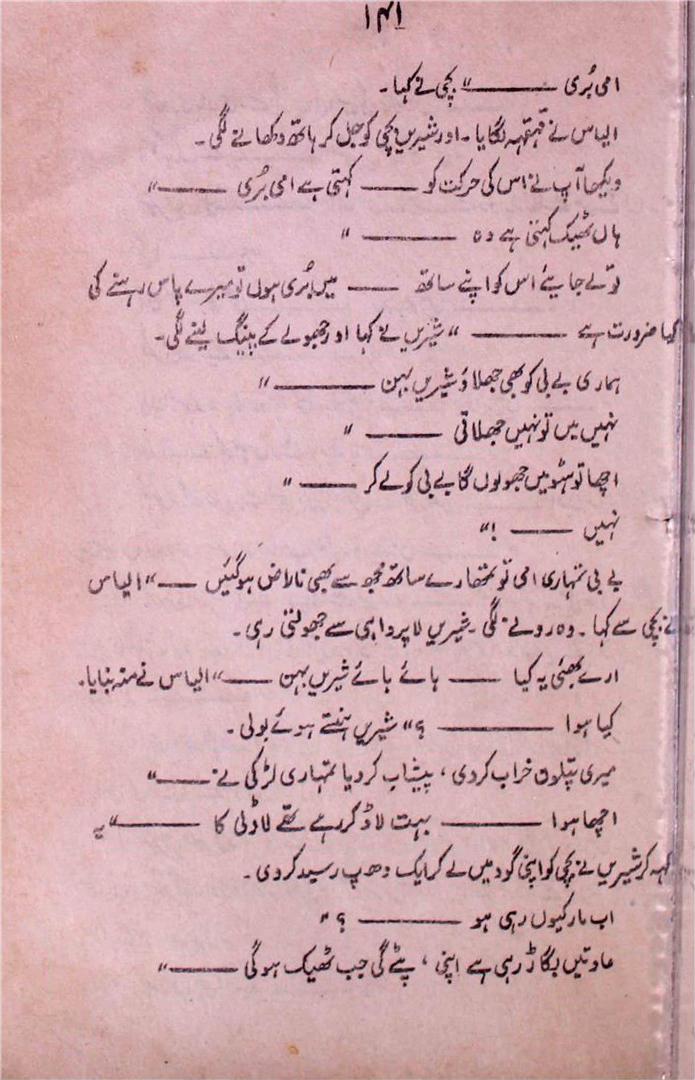 ۱۴۱
امی بُری ——— " بچی نے کہا۔
الیاس نے قہقہہ لگایا۔ اور شیریں بچی کو جھل کر ہاتھ دکھانے لگی۔
دیکھا آپ نے اس کی حرکت کو —— کہتی ہے امی بُری ——— "
ہاں ٹھیک کہتی ہے وہ ——— "
تو لے جایئے اس کو اپنے ساتھ —— میں بُری ہوں تو میرے پاس رہنے کی
کیا ضرورت ہے ——— " شیریں نے کہا اور جھولے کے پینگ لینے لگی۔
ہماری بے بی کو بھی جھلاؤ شیریں بہن ——— "
نہیں میں تو نہیں جھلاتی ——— "
اچھا تو ہٹو میں جھولوں گا بے بی کو لے کر —— "
نہیں —— !"
بے بی تمہاری امی تو تمھارے ساتھ مجھ سے بھی ناراض ہو گئیں —— " الیاس
نے بچی سے کہا۔ وہ رونے لگی۔ شیریں لاپرواہی سے جھولتی رہی۔
ارے بھئی یہ کیا —— ہائے ہائے شیریں بہن —— " الیاس نے منہ بنایا۔
کیا ہوا ——— ؟" شیریں ہنستے ہوئے بولی۔
میری پتلون خراب کر دی، پیشاب کر دیا تمہاری لڑکی نے —— "
اچھا ہوا ——— بہت لاڈ کر رہے تھے لاڈلی کا ——— " یہ
کہہ کر شیریں نے بچی کو اپنی گود میں لے کر ایک دھپ رسید کر دی۔
اب مار کیوں رہی ہو ——— ؟"
عادتیں بگاڑ رہی ہے اپنی، پٹے گی جب ٹھیک ہو گی —— "